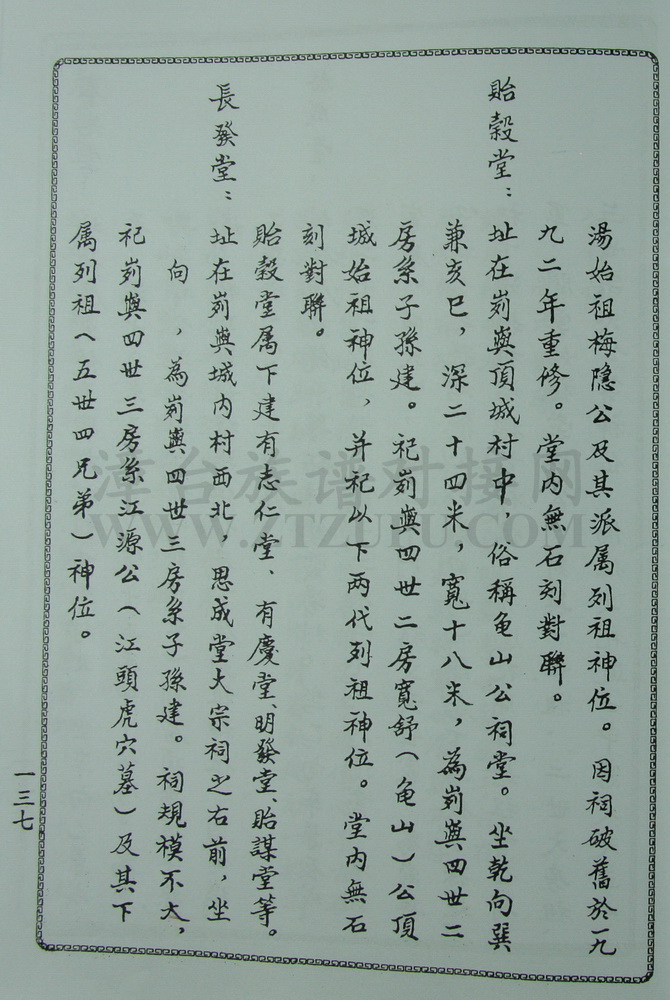 湯始祖梅隐公及其派属列祖神位。因祠破舊於一九
九二年重修。堂内無石刻對聯。
貽穀堂：址在峛嶼頂城村中，俗稱龟山公祠堂。坐乾向巽
兼亥巳，深二十四米，寬十八米，為峛嶼四世二
房系子孫建。祀峛嶼四世二房寬舒（龟山）公頂
城始祖神位，并祀以下两代列祖神位。堂内無石
刻對聯。
貽穀堂属下建有志仁堂、有慶堂、明發堂、貽謀堂等。
長發堂：址在峛嶼城内村西北，思成堂大宗祠之右前，坐
向，為峛嶼四世三房系子孫建。祠規模不大，
祀峛嶼四世三房系江源公（江頭虎穴墓）及其下
属列祖（五世四兄弟）神位。
一三七
漳台族谱对接网
WWW.ZTZUPU.COM